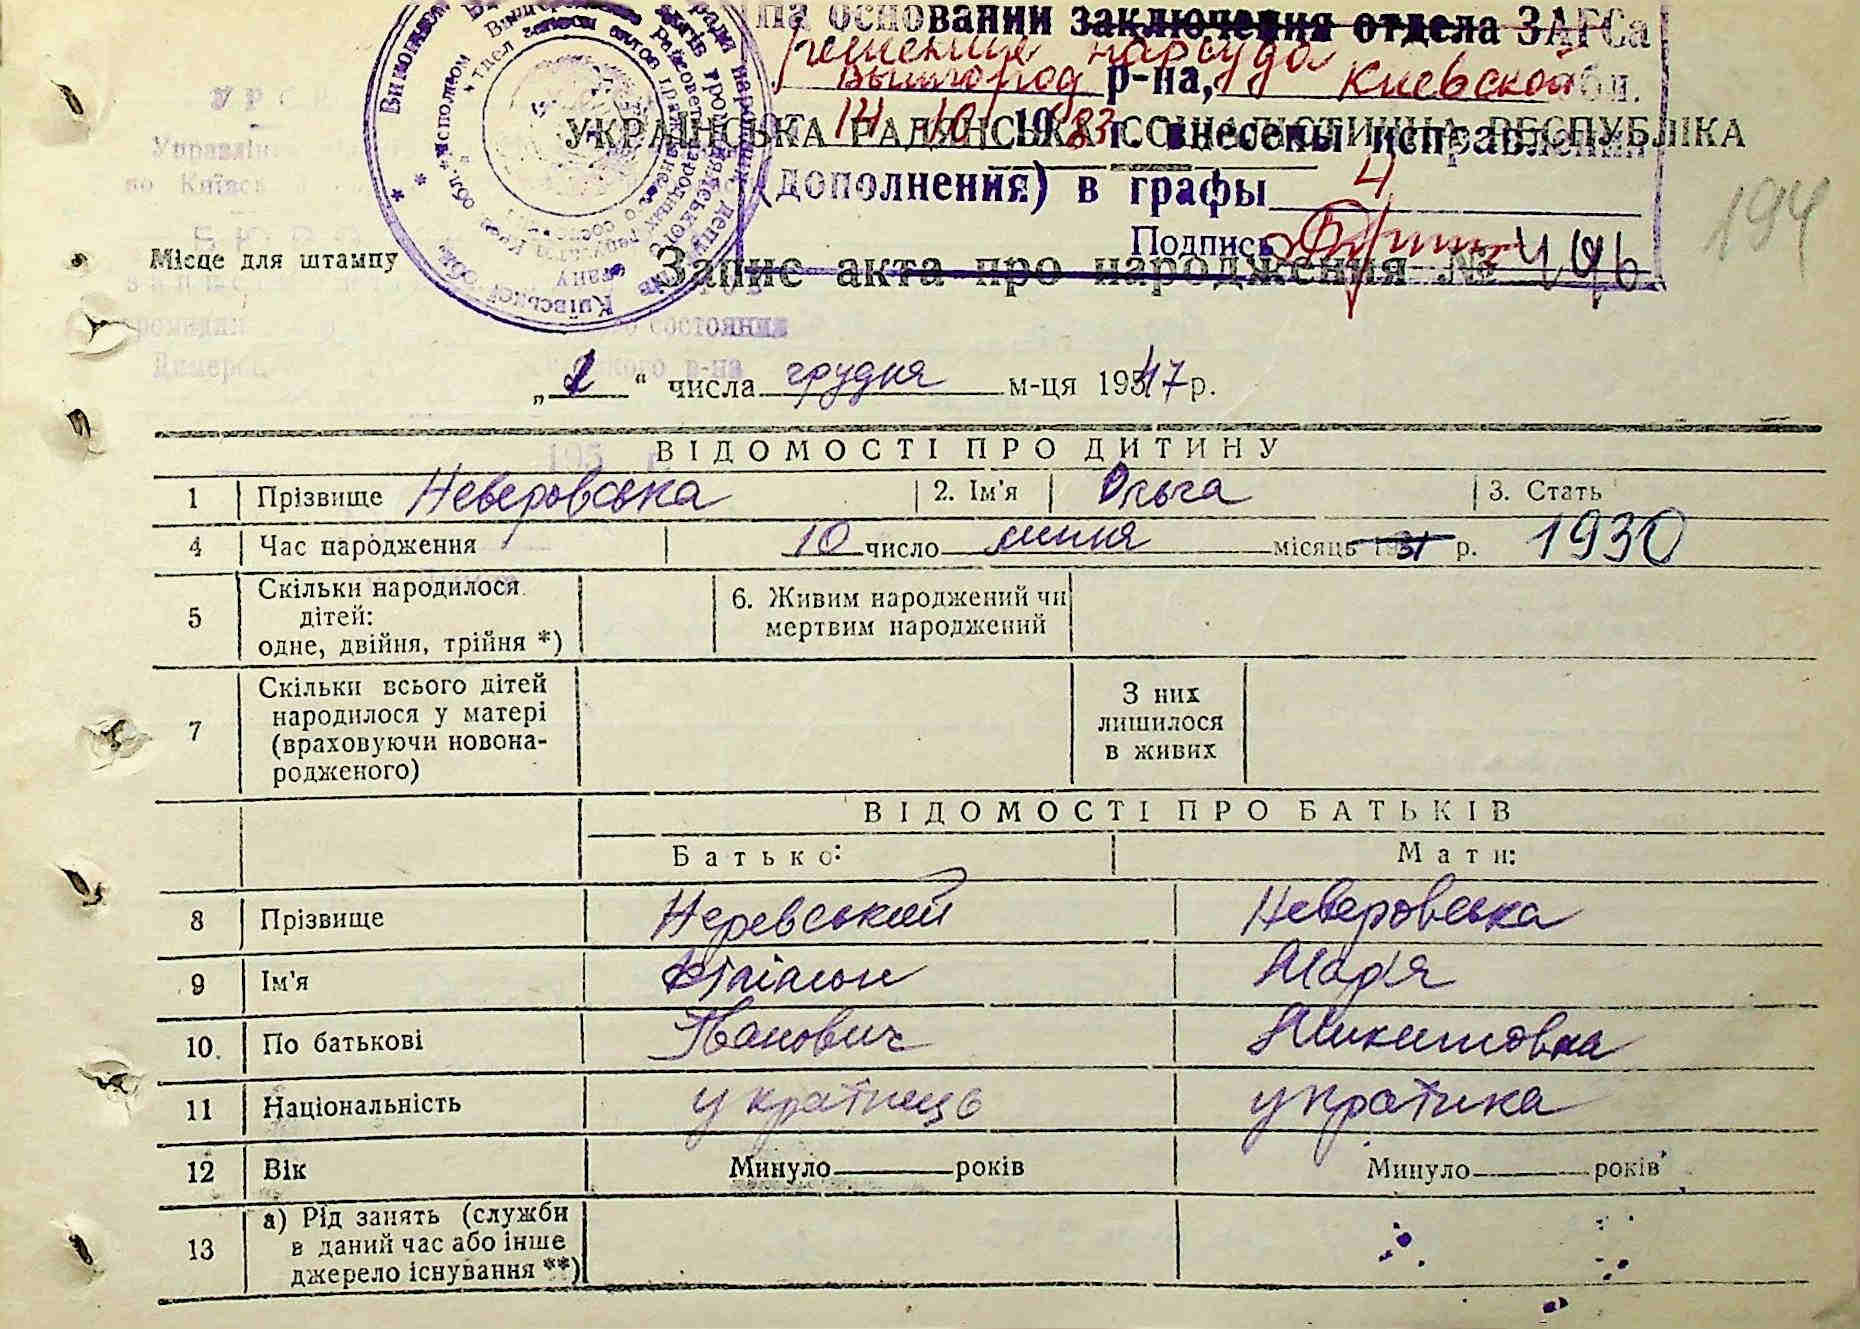 на основании заключения отдела ЗАГСа
решения нарсуда
Вышгород р-на, Киевской обл.
от 14 10 1983 г. внесены исправления
УКРАЇНСЬКА РАДЯНСЬКА СОЦІАЛІСТИЧНА РЕСПУБЛІКА
(дополнения) в графы 4
194
Подпись
Місце для штампу
Запис акта про народження №
состояния
„ “ числа грудня м-ця 1947 р.
ВІДОМОСТІ ПРО ДИТИНУ
1 Прізвище Неверовська 2. Ім'я Ольга 3. Стать
4 Час народження 10 число липня місяць 1931 р. 1930
5 Скільки народилося дітей: одне, двійня, трійня *) 6. Живим народжений чи мертвим народжений
7 Скільки всього дітей народилося у матері (враховуючи новонародженого) З них лишилося в живих
ВІДОМОСТІ ПРО БАТЬКІВ
Батько: Мати:
8 Прізвище Неревський Неверовська
9 Ім'я Філімон Мар'я
10. По батькові Іванович Микитовна
11 Національність українець українка
12 Вік Минуло років Минуло років
13 а) Рід занять (служби в даний час або інше джерело існування **)